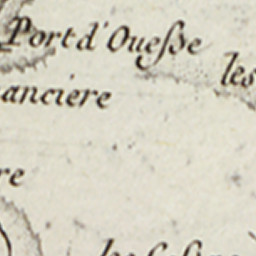 Port d'Ouesse
les
anciere
re